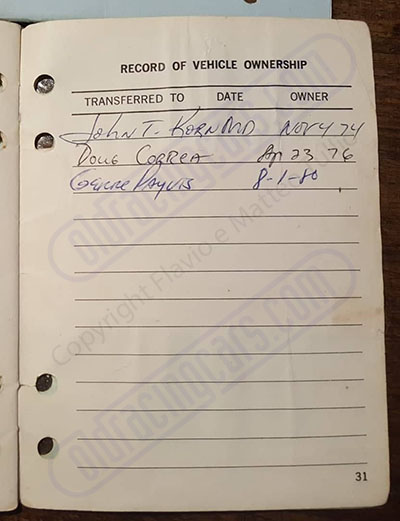 RECORD OF VEHICLE OWNERSHIP
TRANSFERRED TO DATE OWNER
John T. Korn MD Nov 4 74
Doug Correa Ap 23 76
8-1-80
31
Copyright Flavio e Matteo
oldracingcars.com
oldracingcars.com
oldracingcars.com